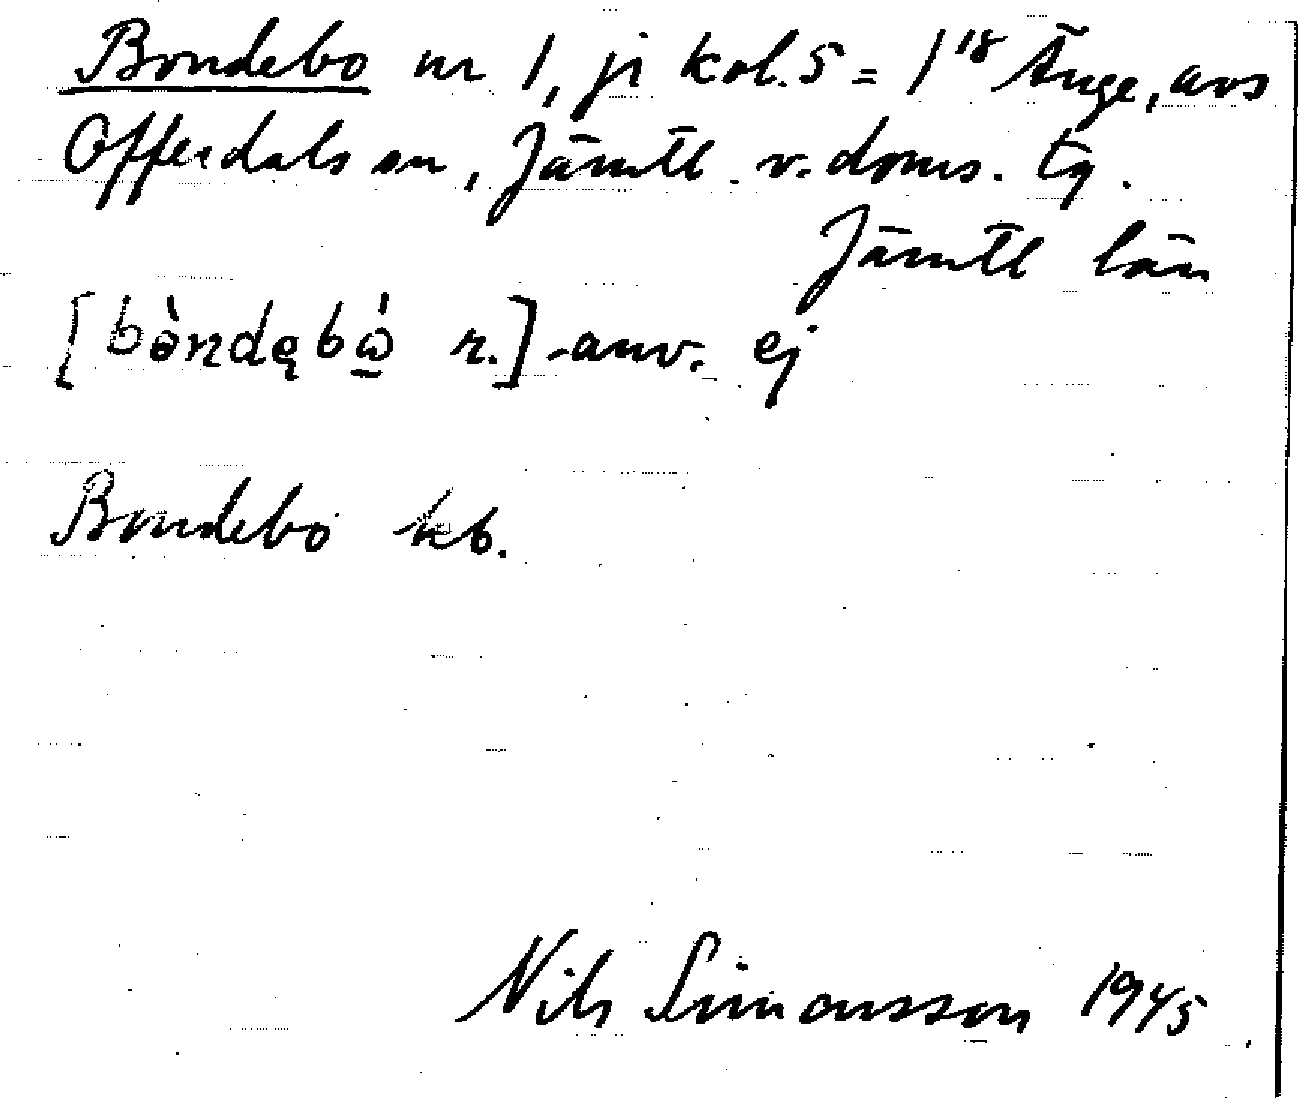 Bondebo nr 1, ji kol. 5 = 1¹⁸ Änge, avs
Offerdals sn, Jämtl. v. doms. tg.
Jämtl län
[bòndębὼ̣ n.] -anv. ej
Bondebo kb.
Nils Simonsson 1945